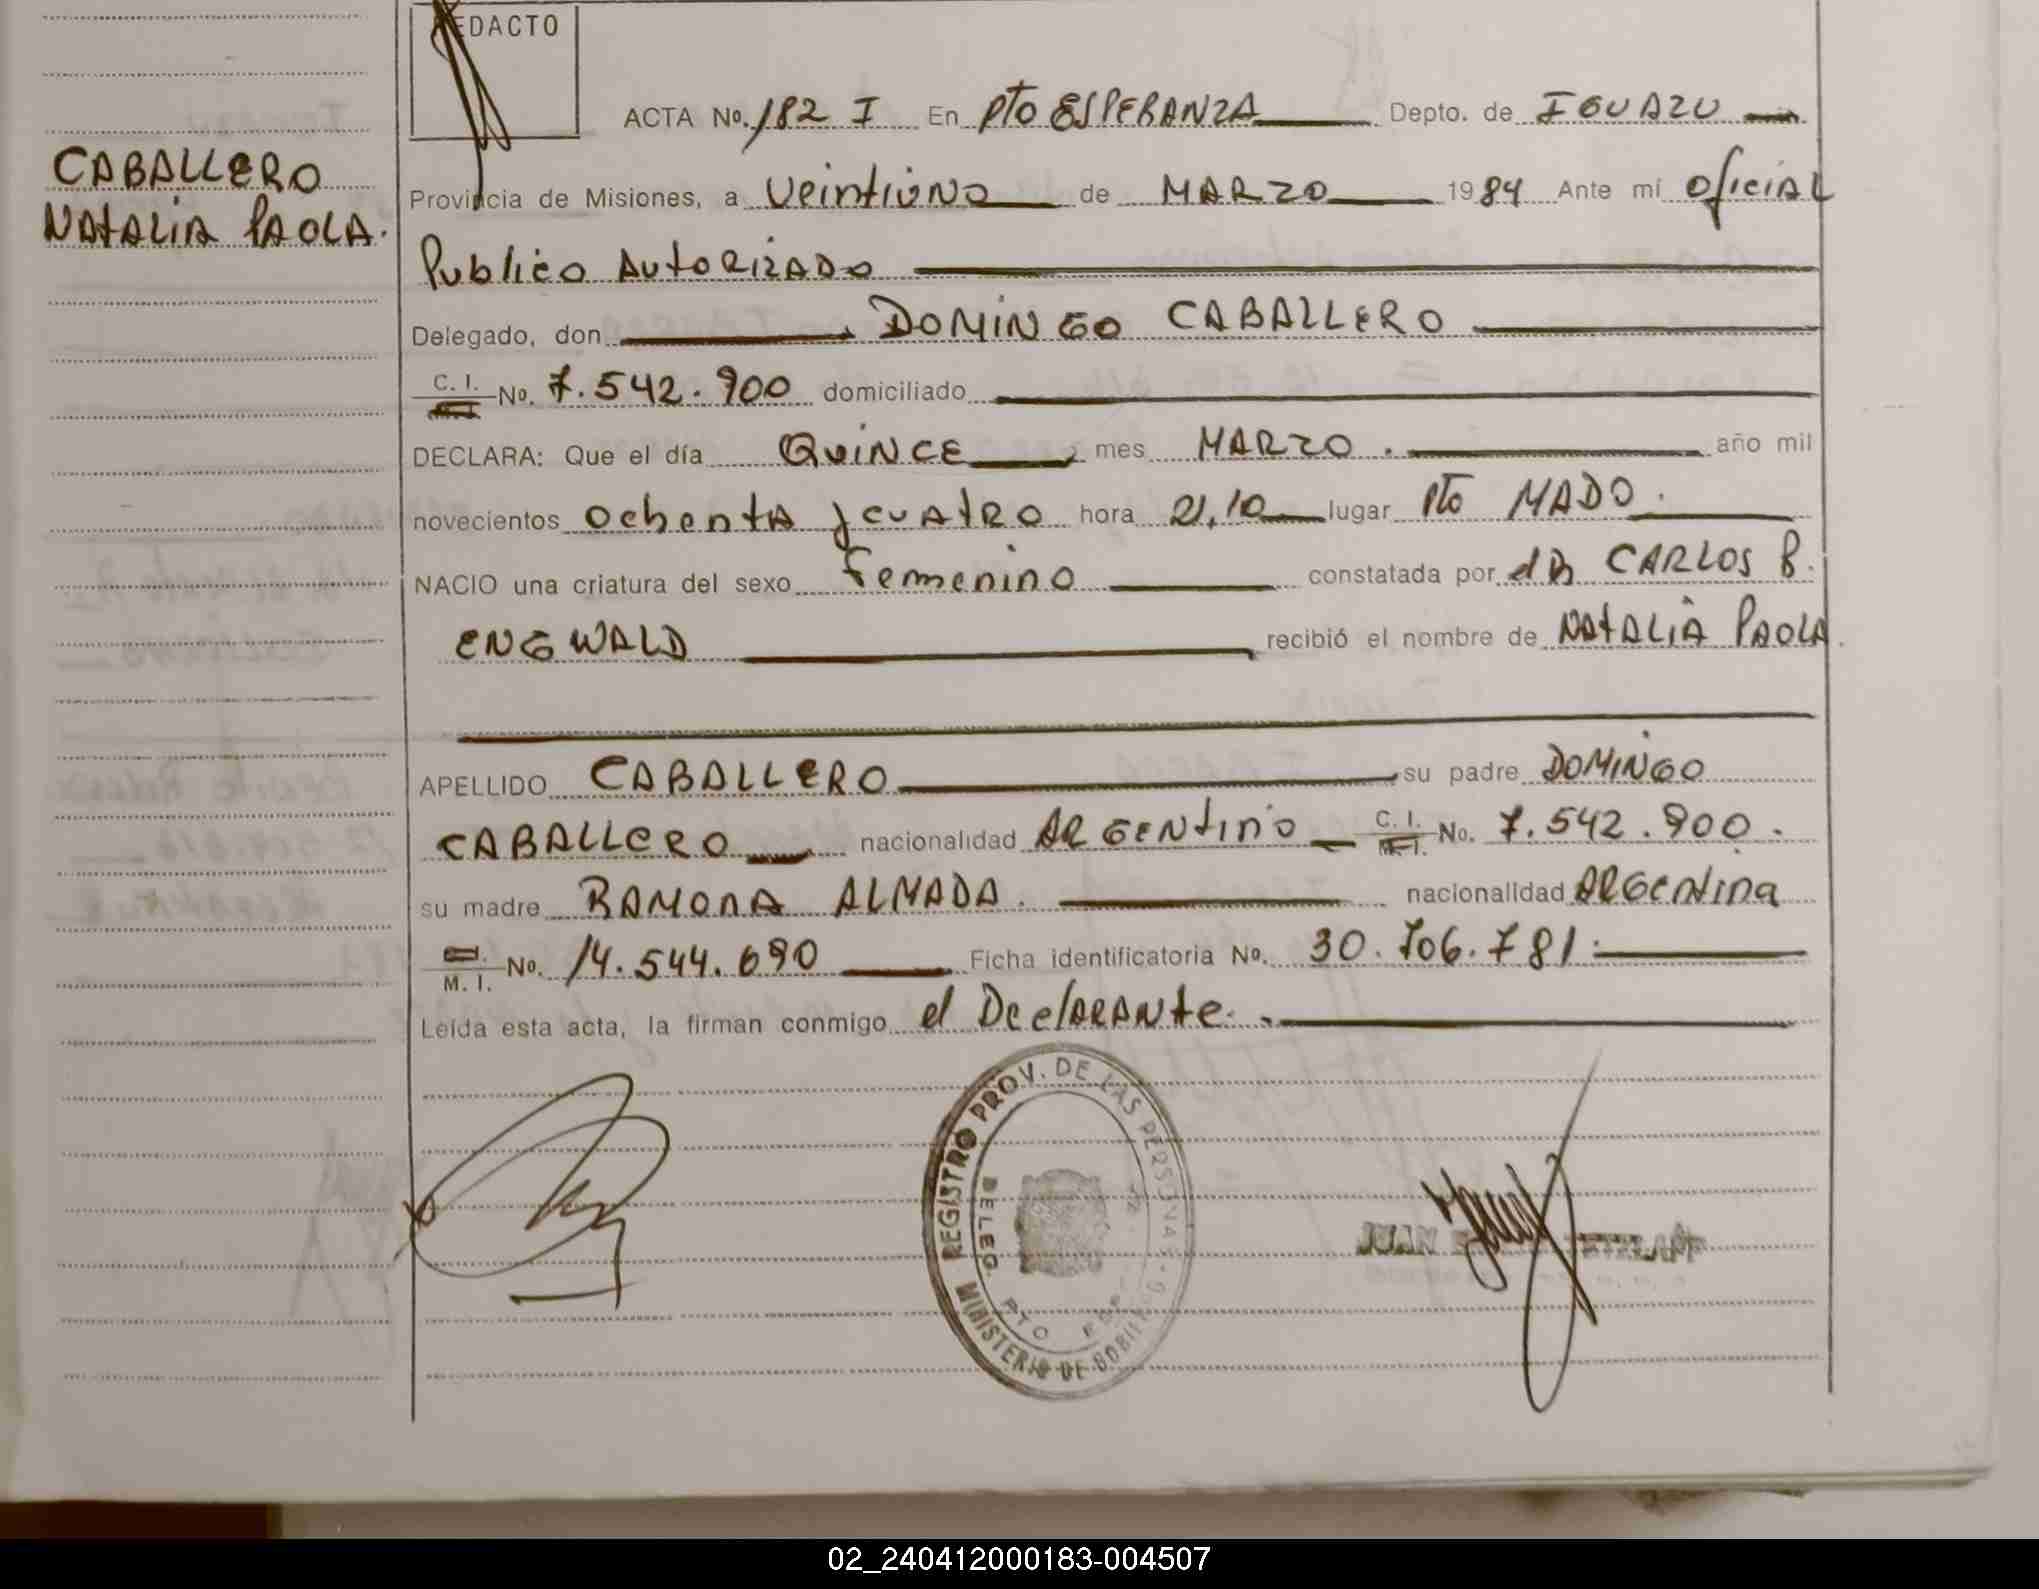 REDACTO
ACTA No. 182 I En Pto ESPERANZA Depto. de IGUAZU
CABALLERO
NATALIA PAOLA.
Provincia de Misiones, a veintiuno de MARZO 1984 Ante mí oficial
Publico Autorizado
Delegado, don DOMINGO CABALLERO
C. I. No. 7.542.900 domiciliado
DECLARA: Que el día QUINCE mes MARZO. año mil
novecientos ochenta y cuatro hora 21,10 lugar Pto MADO.
NACIO una criatura del sexo femenino constatada por dR CARLOS B.
ENGWALD recibió el nombre de NATALIA PAOLA.
APELLIDO CABALLERO su padre DOMINGO
CABALLERO nacionalidad ARGENTINO C. I. M. I. No. 7.542.900.
su madre RAMONA ALMADA. nacionalidad ARGENTINA
M. I. No. 14.544.690 Ficha identificatoria No. 30.706.781.
Leída esta acta, la firman conmigo el DeclARANte.
REGISTRO PROV. DE LAS PERSONAS
MINISTERIO DE GOBIERNO
DELEG. PTO ESP
JUAN
02_240412000183-004507